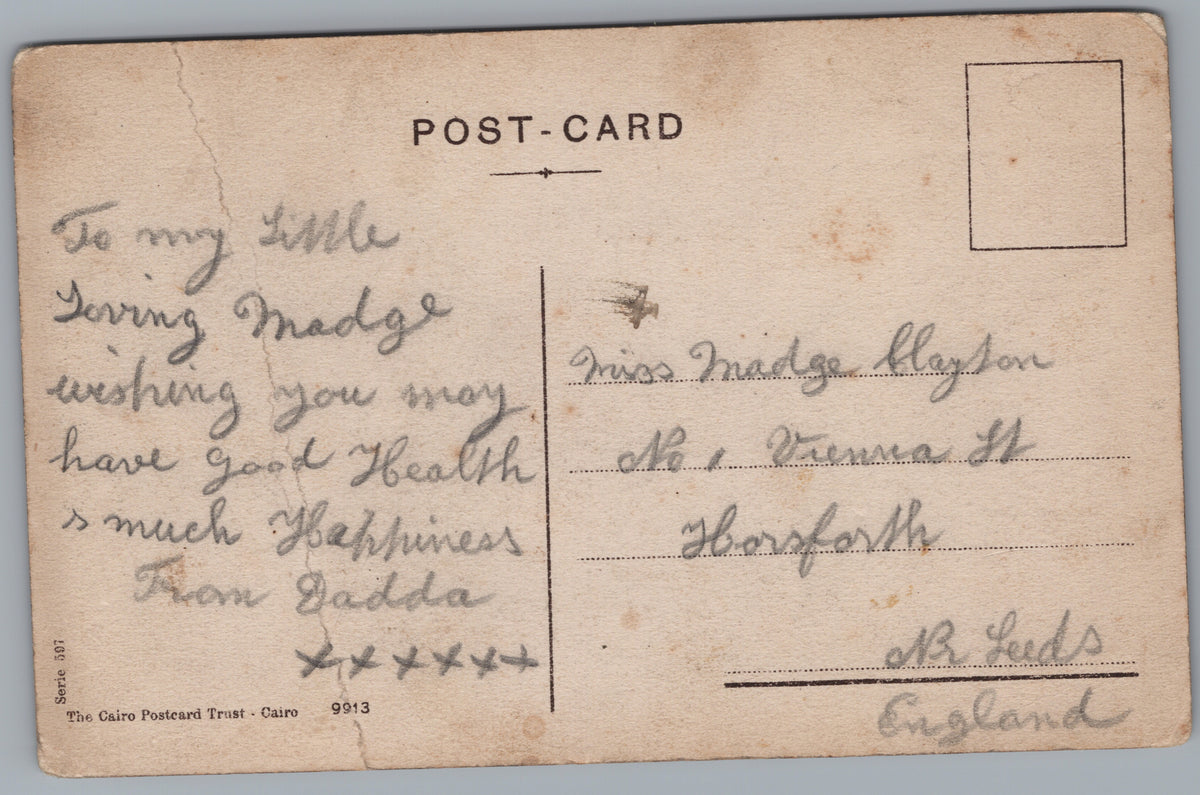 POST-CARD
To my Little
Loving Madge
wishing you may
have good Health
s much Happiness
From Dadda
xxxxxx
Miss Madge Clayton
No 1 Vienna St
Horsforth
Nr Leeds
England
Serie 597
The Cairo Postcard Trust - Cairo 9913